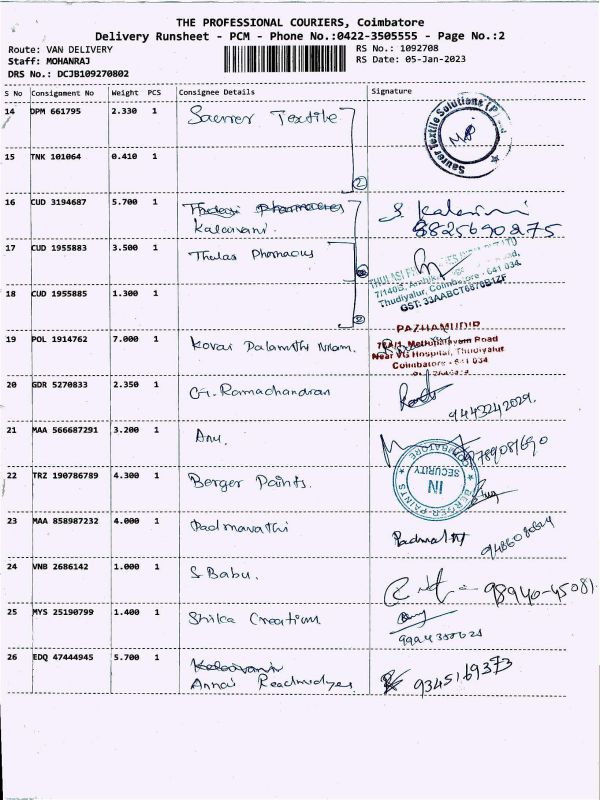 THE PROFESSIONAL COURIERS, Coimbatore
Delivery Runsheet - PCM - Phone No.:0422-3505555 - Page No.:2
Route: VAN DELIVERY
Staff: MOHANRAJ
DRS No.: DCJB109270802
RS No.: 1092708
RS Date: 05-Jan-2023
S No Consignment No Weight PCS Consignee Details Signature
14 DPM 661795 2.330 1 Saurer Textile
Saurer Textile Solutions (P)
15 TNK 101064 0.410 1
2
16 CUD 3194687 5.700 1 Kalaivani S. Kalaivani
8825690275
17 CUD 1955883 3.500 1 Thulasi Pharmacy
THULASI
7/140B,
Thudiyalur, Coimbatore - 641 034.
GST: 33AABCT6670B1ZF
18 CUD 1955885 1.300 1
2
19 POL 1914762 7.000 1 Kovai Palamuthir Nilam.
PAZHAMUDIR
Mettupalayam Road
Near VG Hospital, Thudiyalur
Coimbatore - 641 034
20 GDR 5270833 2.350 1 G. Ramachandran
9443242029.
21 MAA 566687291 3.200 1 Anu.
9789081690
22 TRZ 190786789 4.300 1 Berger Paints.
BERGER PAINTS
COIMBATORE
SECURITY
IN
23 MAA 858987232 4.000 1 Padmavathi
24 VNB 2686142 1.000 1 S Babu.
98940-45081
25 MYS 25190799 1.400 1 Shilka Creation
26 EDQ 47444945 5.700 1 Kalaivani
Annai Readymades
9345169373